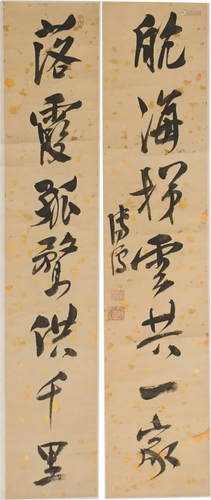 航海梯雲共一家
落霞孤鶩供千里